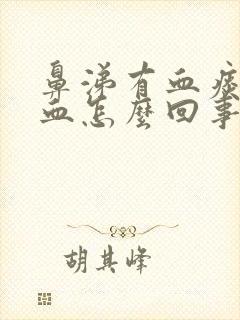 鼻涕有血痰
血怎麼回事
胡其峰